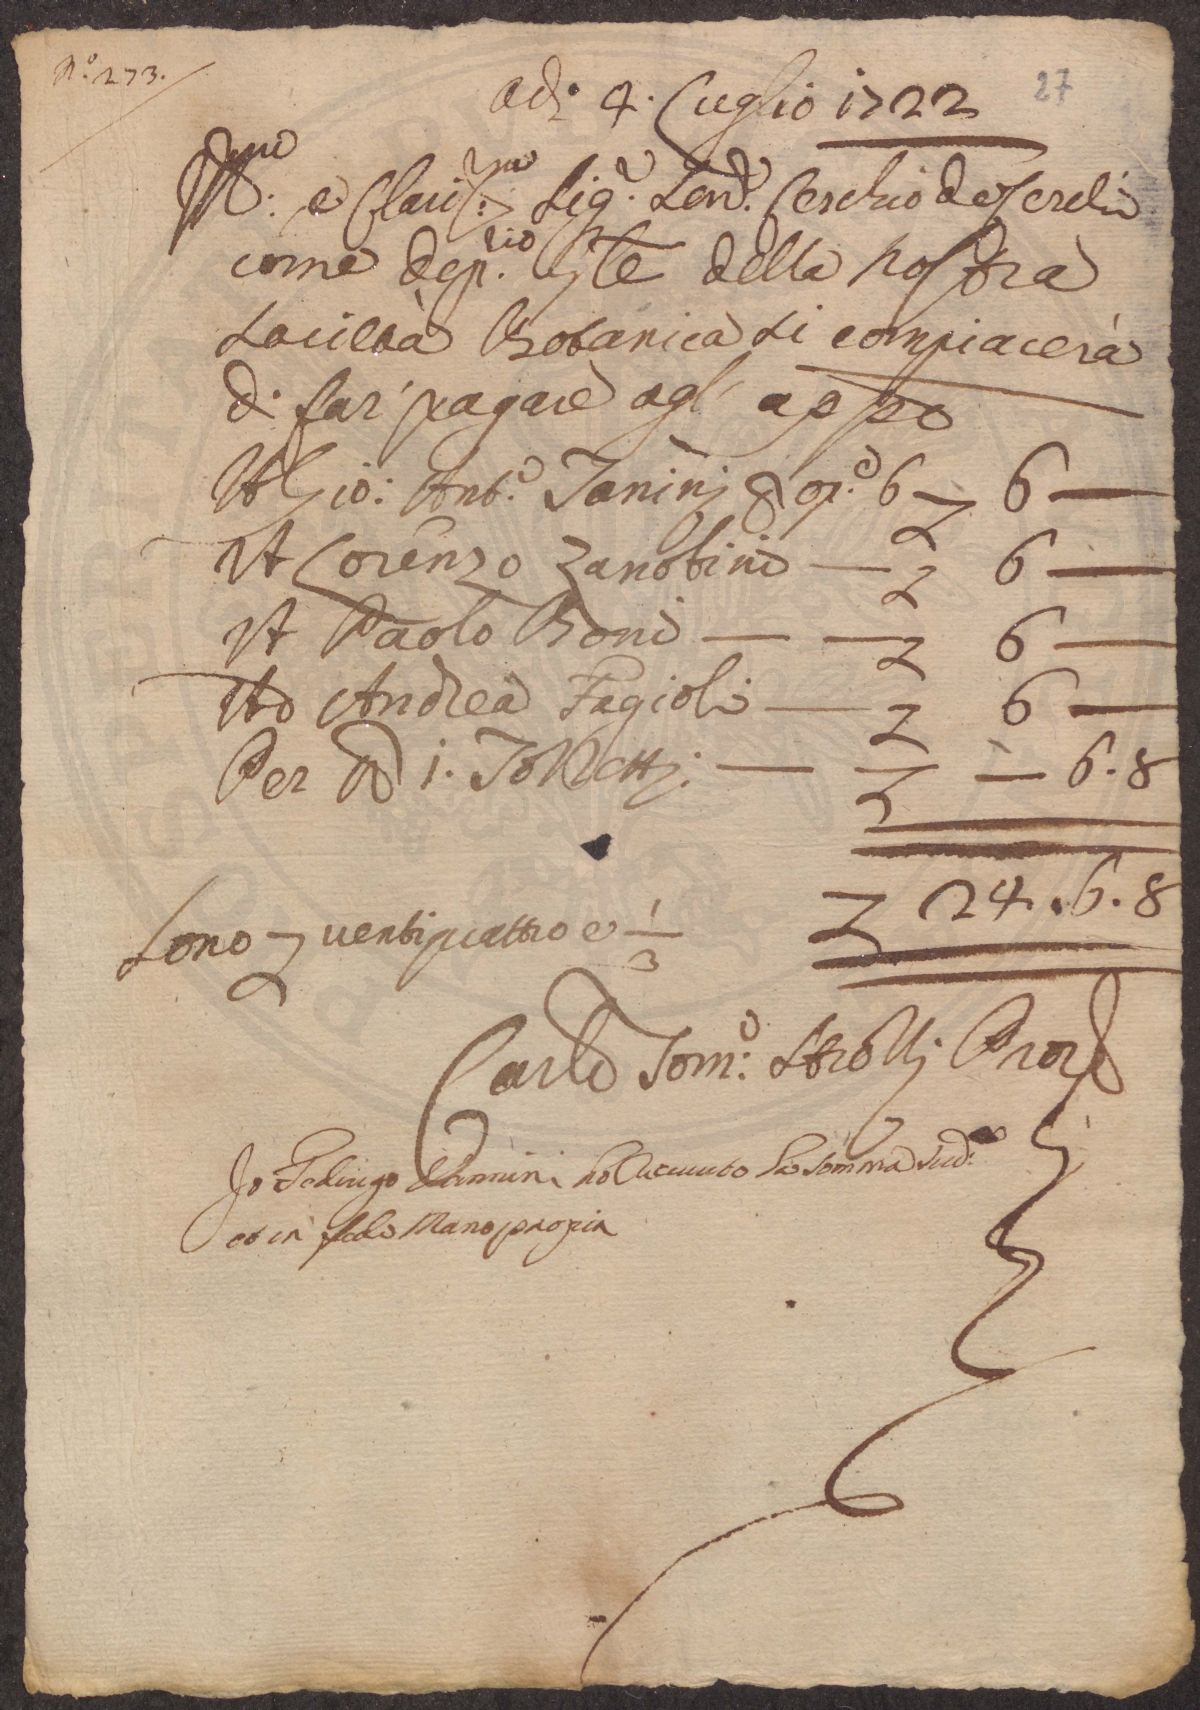 N.° 273.
27
Adì 4. Luglio 1722
Ill.mo e Claris.mo Sig.r Sen.r Cerchio de Cerchi
come dep.rio &te della nostra
Società Botanica si compiacerà
di far pagare agl' app.o
A Gio: Ant.o Tanini p op.e 6 — £ 6 —
A Lorenzo Zanobini — £ 6 —
A Paolo Boni — — £ 6 —
Ad Andrea Fagioli — £ 6 —
Per — — £ — 6.8
£ 24.6.8
Sono £ ventiquattro e 1/3
Carlo Tom.o Strozzi Pror
Io Tanini ho riceuuto la somma sud.a
et in fede Mano propia